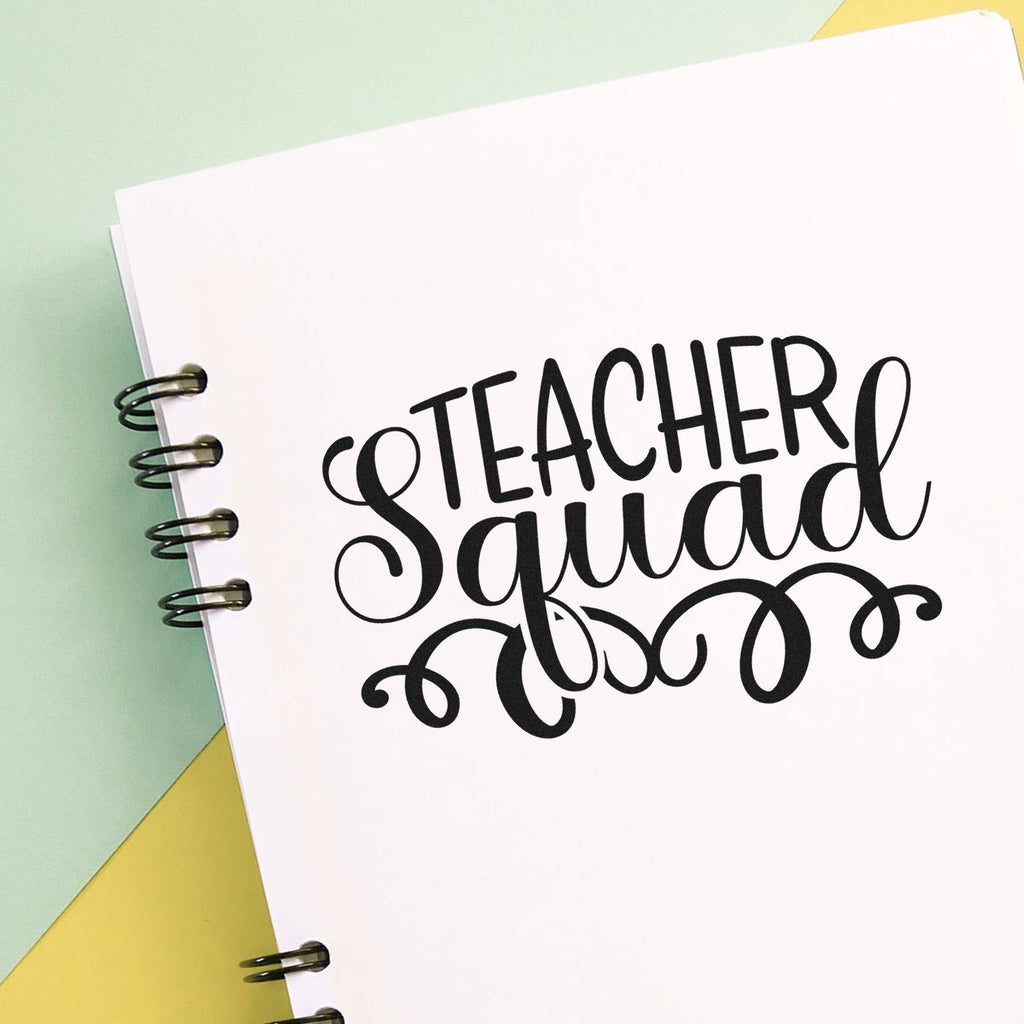 TEACHER
Squad